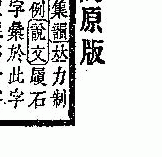 原版
集韻𠀤力制
例說文履石
字彙於此字